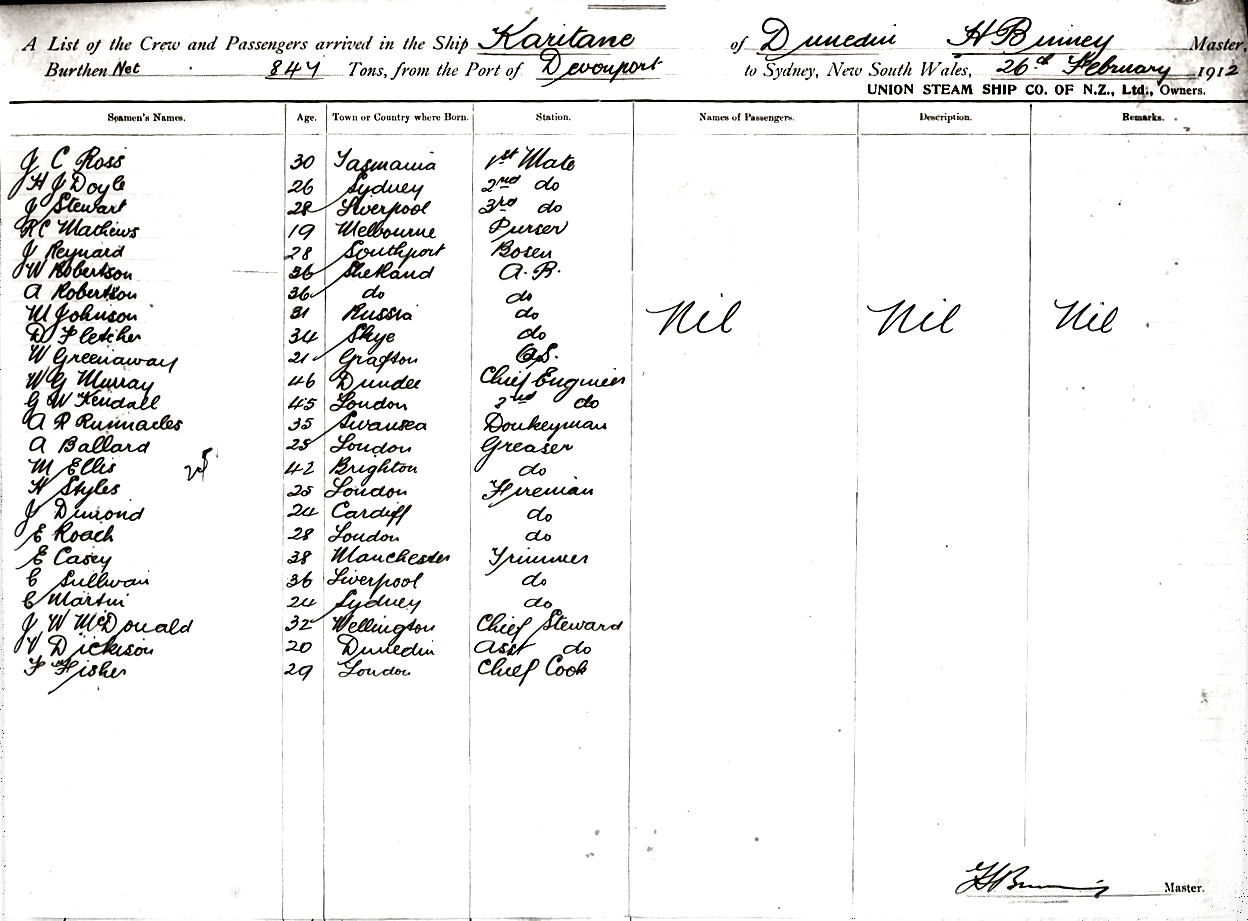 A List of the Crew and Passengers arrived in the Ship Karitane of Dunedin H Binney Master,
Burthen Net 847 Tons, from the Port of Devonport to Sydney, New South Wales, 26th February 1912
UNION STEAM SHIP CO. OF N.Z., Ltd., Owners.
Seamen's Names. Age. Town or Country where Born. Station. Names of Passengers. Description. Remarks.
J C Ross 30 Tasmania 1st Mate
H J Doyle 26 Sydney 2nd do
J Stewart 28 Liverpool 3rd do
R C Mathews 19 Melbourne Purser
J Reynard 28 Southport Bosen
J W Robertson 36 Shetland A.B.
A Robertson 36 do do
M Johnson 31 Russia do Nil Nil Nil
D Fletcher 34 Skye do
W Greenaway 21 Grafton O.S.
W G Murray 46 Dundee Chief Engineer
G W Kendall 45 London 2nd do
A P Runnacles 35 Swansea Donkeyman
A Ballard 25 London Greaser
M Ellis 42 Brighton do
H Styles 25 London Fireman
J Dimond 24 Cardiff do
E Roach 28 London do
E Casey 38 Manchester Trimmer
C Sullivan 36 Liverpool do
C Martin 24 Sydney do
J W McDonald 32 Wellington Chief Steward
V Dickison 20 Dunedin Asst do
F Fisher 29 London Chief Cook
H Binney Master.